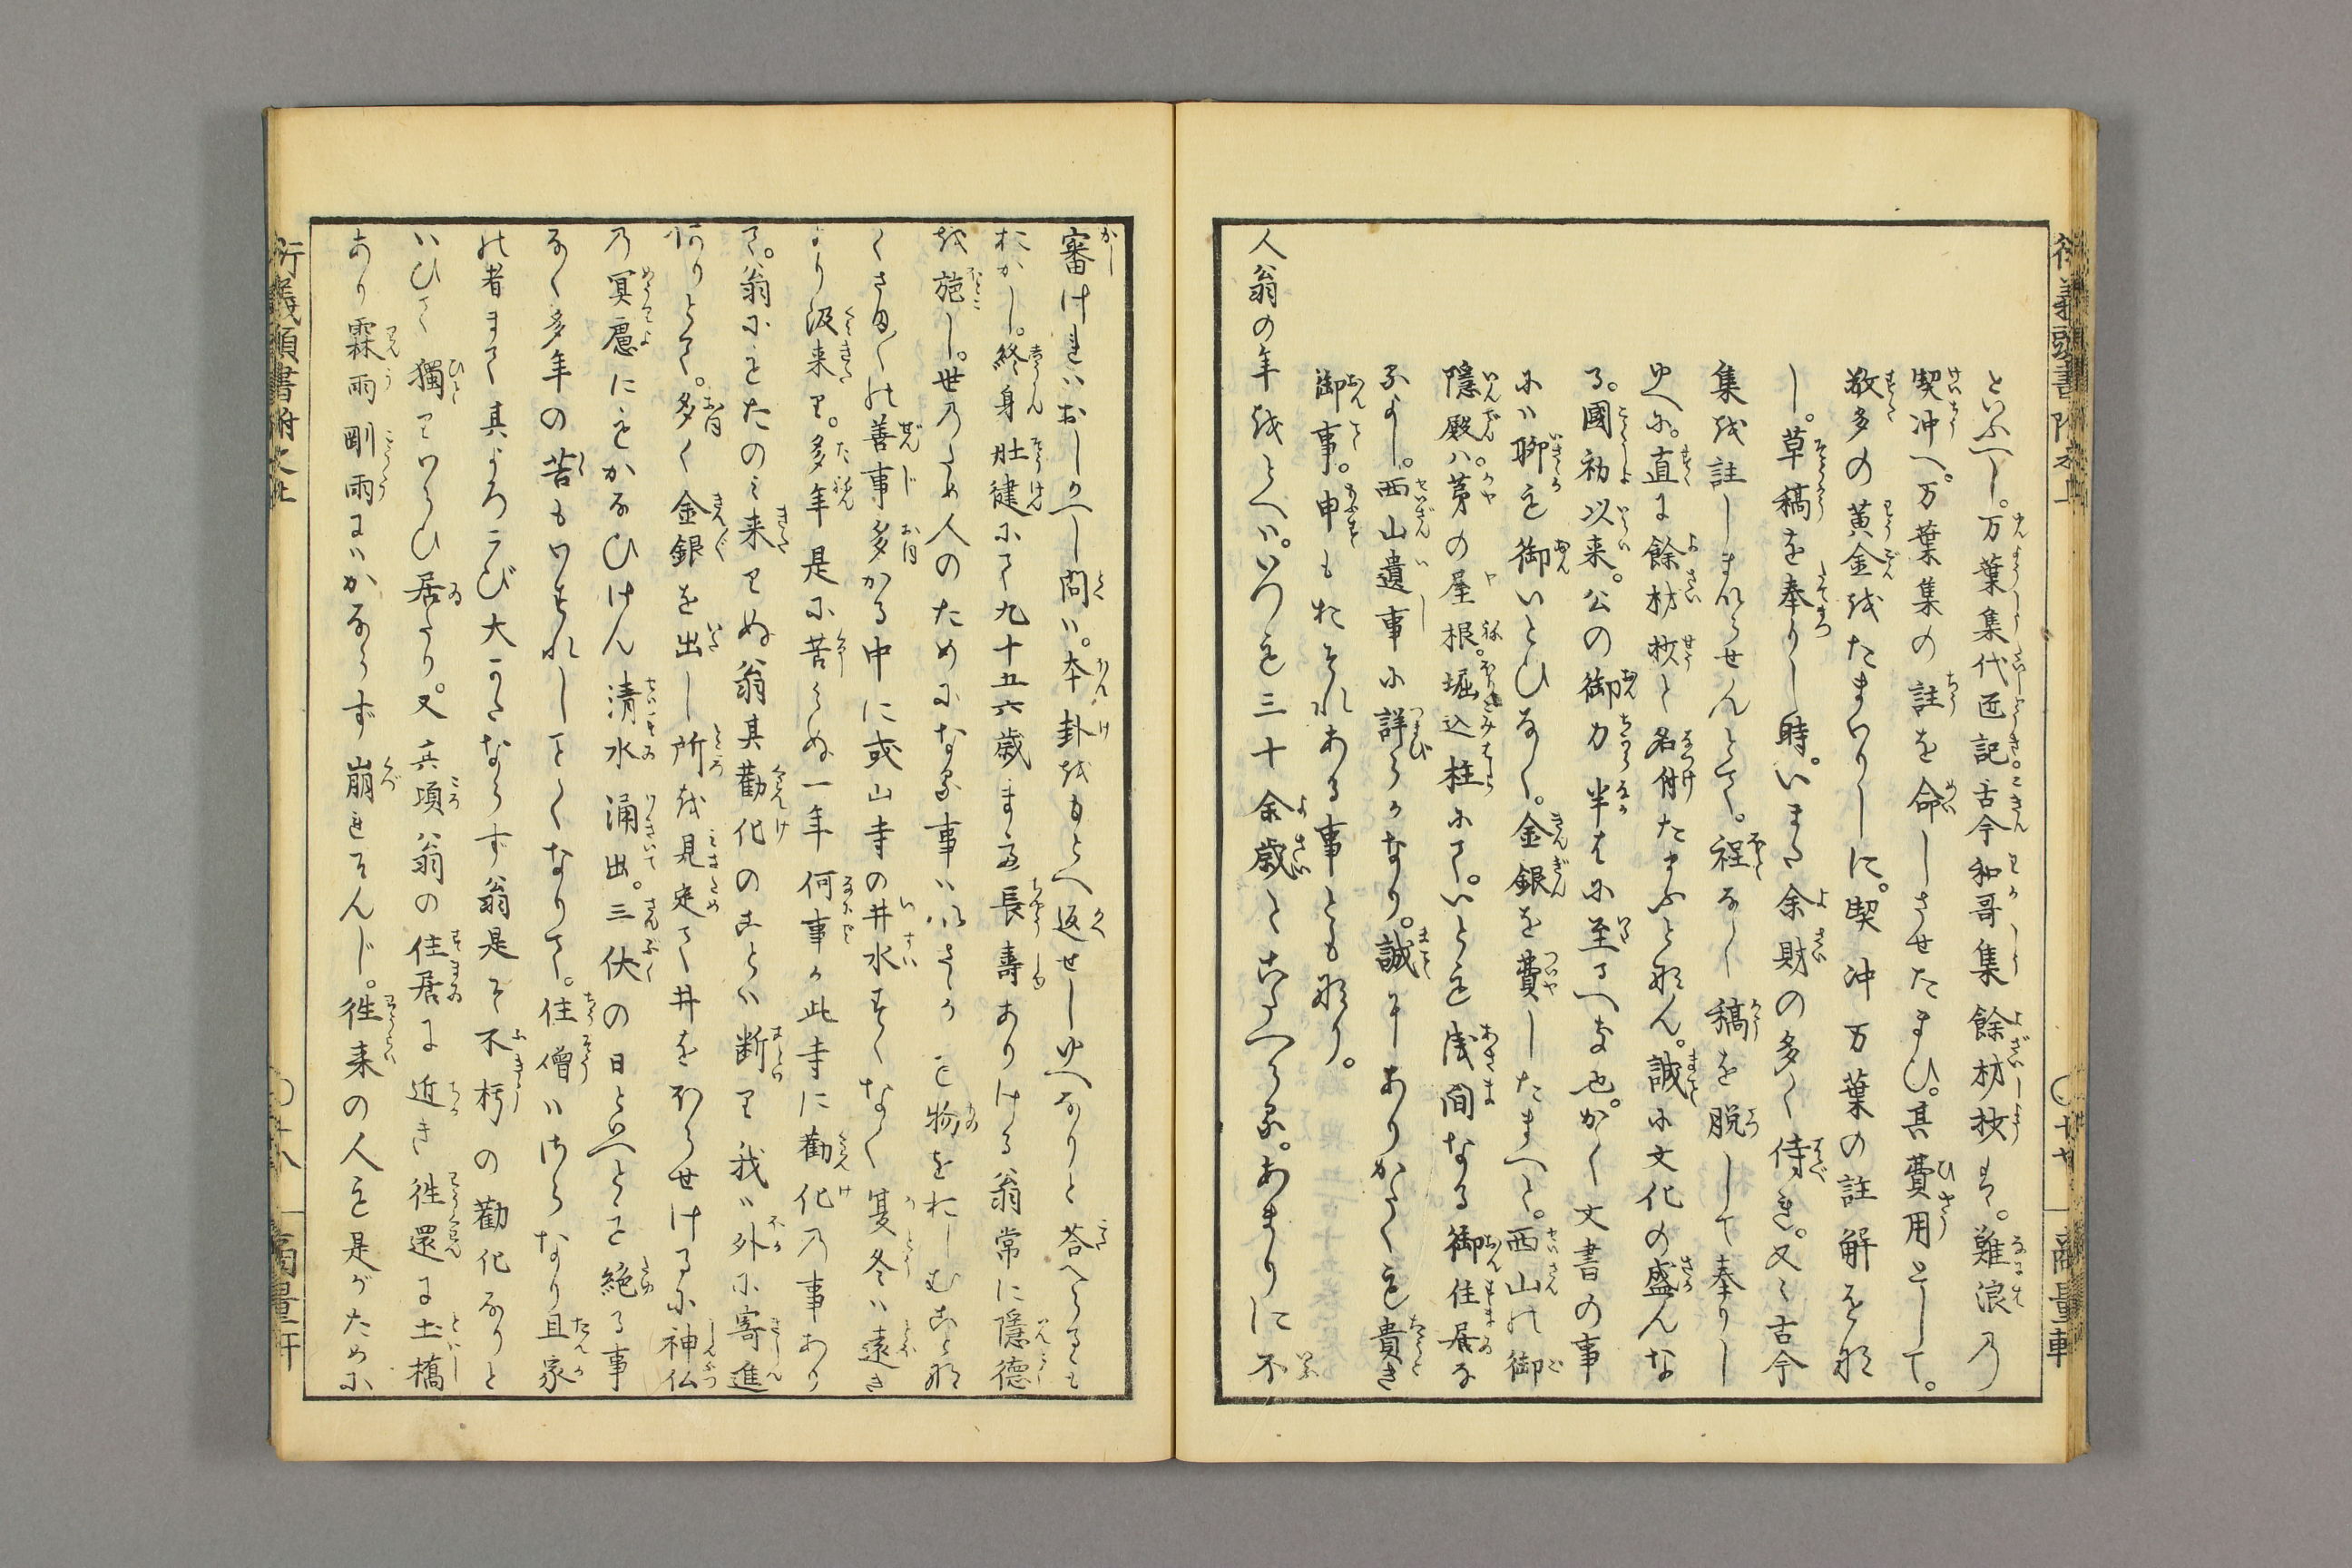 といふべし。万葉集代匠記古今和哥集餘材抄も。難浪乃
契沖へ。万葉集の註を命しさせたまひ。其費用として。
数多の黄金をたまいりしに。契沖万葉の註解をな
し。草稿を奉りし時。いまた余財の多く侍き。又々古今
集を註しまいらせんとて。程なく稿を脱して奉りし
ゆへに。直に餘材抄と名付たまふとなん。誠に文化の盛んな
る。國初以来。公の御力半はに至るへき也。かく文書の事
には聊も御いとひなく。金銀を費したまへと。西山の御
隠殿は。茅の屋根。堀込柱にて。いとも浅間なる御住居な
るよし。西山遺事に詳らかなり。誠にありかたくも貴き
御事。申もおそれある事ともなり。
人翁の年をとへは。いつも三十余歳とこたへける。あまりに不
審けれはおしかへし問は。本卦をもとへ返せしゆへなりと答へらるも
おかし。終身壮健にて九十五六歳まて長壽ありける翁常に隠徳
を施し。世のため人のためになる事はいさゝか も物をおしむことな
くさま〳〵の善事多かる中に或山寺の井水すくなく夏冬は遠き
より汲来り。多年是に苦しみぬ一年何事か此寺に勧化乃事あり
て。翁にもたのみ来りぬ翁其勧化のことは断り我は外に寄進
ありとて。多く金銀を出し所を見定て井をほらせけるに神仏
乃冥慮にもかなひけん清水涌出。三伏の日といへとも絶る事
なく多年の苦もわすれしことくなりて。住僧はさらなり且家
の者まて其よろこび大かたならず翁是そ不朽の勧化なりと
いひて獨りわらひ居たり。又其頃翁の住居に近き往還に土橋
あり霖雨剛雨にはかならず崩れそんじ。往来の人も是がために